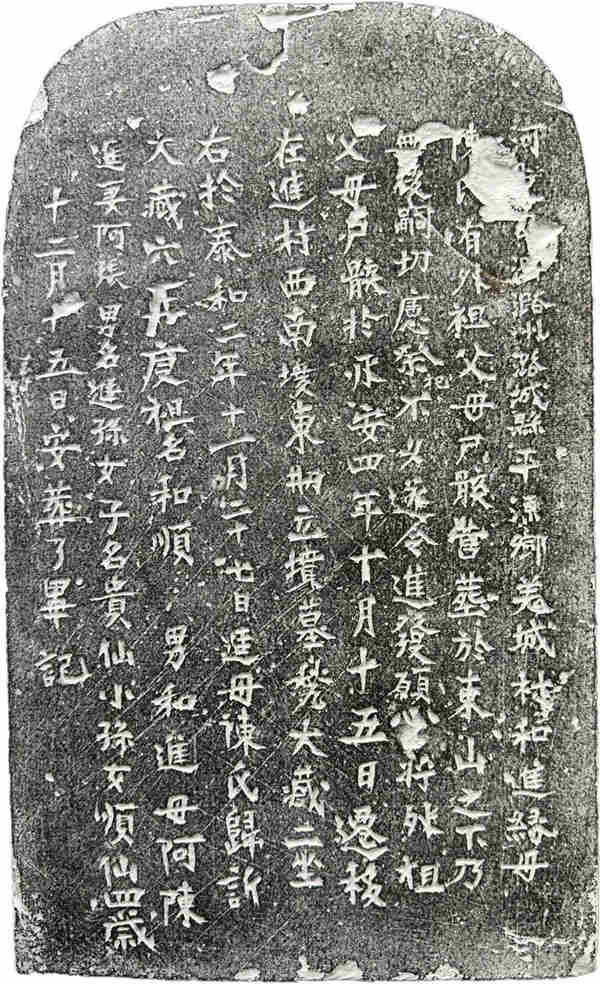 河東南路潞州潞城縣平源鄉羗城村和進緣母
陳氏有外祖父母尸骸營葬於東山之下乃
無後嗣切慮祭祀不安遂令進發願心將外祖
父母尸骸於承安四年十月十五日遷移
在進村西南墳東側立墳墓甃大藏二坐
右於泰和二年十一月二十七日進母陳氏歸訢
大藏穴 度祖名和順男和進母阿陳
進妻阿張男名進孫女子名貴仙小孫女順仙四歲
十二月十五日安葬了畢記